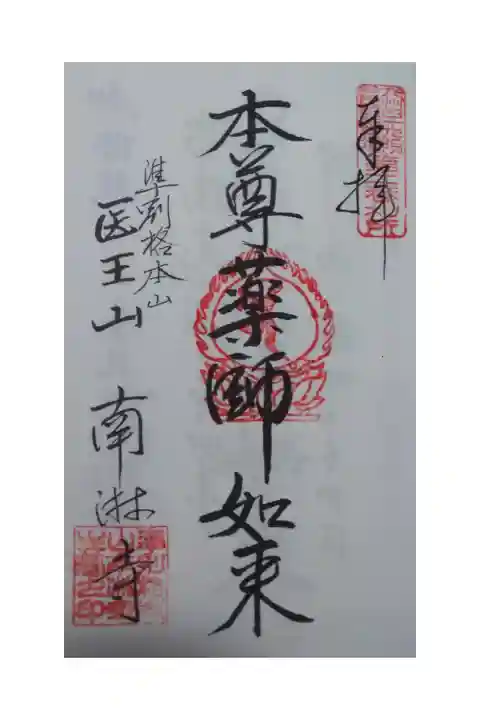 奉拝
本尊薬師如来
準別格本山
医王山 南淋寺